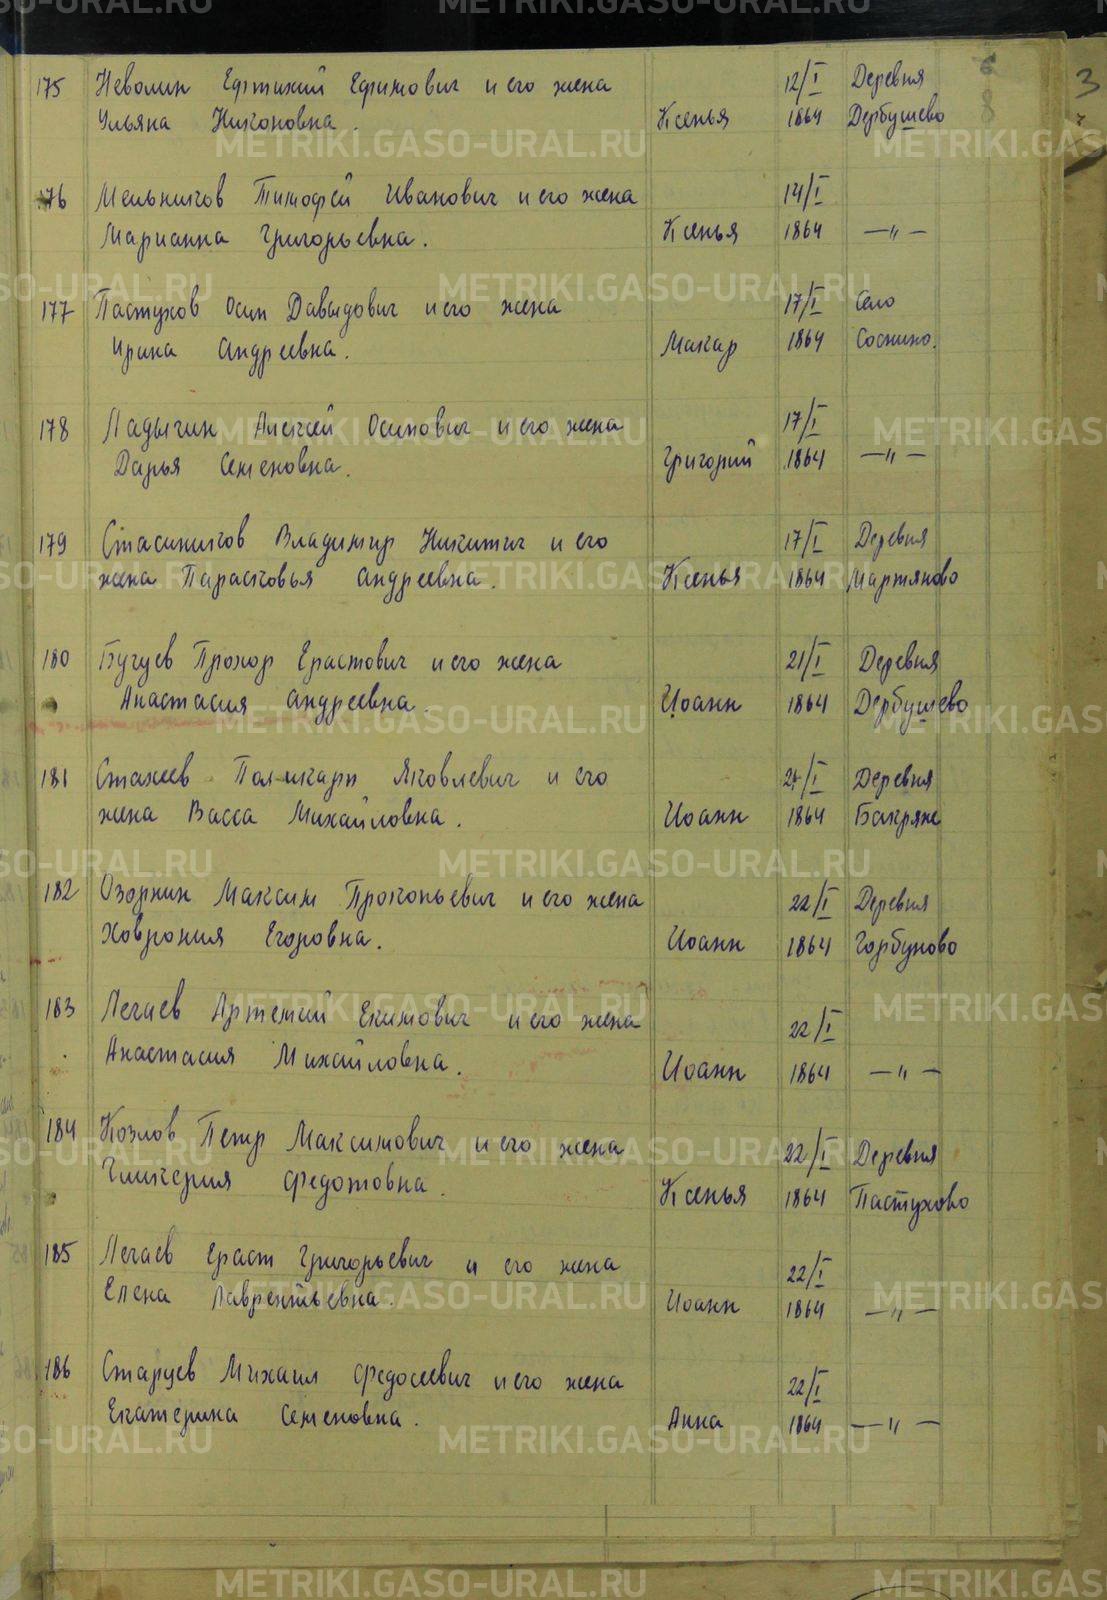 175 Неволин Ефтихий Ефимович и его жена 12/I Деревня
Ульяна Никоновна. Ксенья 1864 Дербушево
176 Мельников Тимофей Иванович и его жена 14/I
Марианна Григорьевна. Ксенья 1864 —"—
177 Пастухов Осип Давыдович и его жена 17/I Село
Ирина Андреевна. Макар 1864 Соснино.
178 Ладыгин Алексей Осипович и его жена 17/I
Дарья Семеновна. Григорий 1864 —"—
179 Стасиников Владимир Никитич и его 17/I Деревня
жена Парасковья Андреевна. Ксенья 1864 Мартяново
180 Бугуев Прохор Ерастович и его жена 21/I Деревня
Анастасия Андреевна. Иоанн 1864 Дербушево
181 Стахеев Поликарп Яковлевич и его 21/I Деревня
жена Васса Михайловна. Иоанн 1864 Бакряж
182 Озорнин Максим Прокопьевич и его жена 22/I Деревня
Ховрония Егоровна. Иоанн 1864 Горбуново
183 Легаев Артемий Екимович и его жена 22/I
Анастасия Михайловна. Иоанн 1864 —"—
184 Козлов Петр Максимович и его жена 22/I Деревня
Гликерия Федотовна. Ксенья 1864 Пастухово
185 Легаев Ераст Григорьевич и его жена 22/I
Елена Лаврентьевна. Иоанн 1864 —"—
186 Старцев Михаил Федосеевич и его жена 22/I
Екатерина Семеновна. Анна 1864 —"—
METRIKI.GASO-URAL.RU